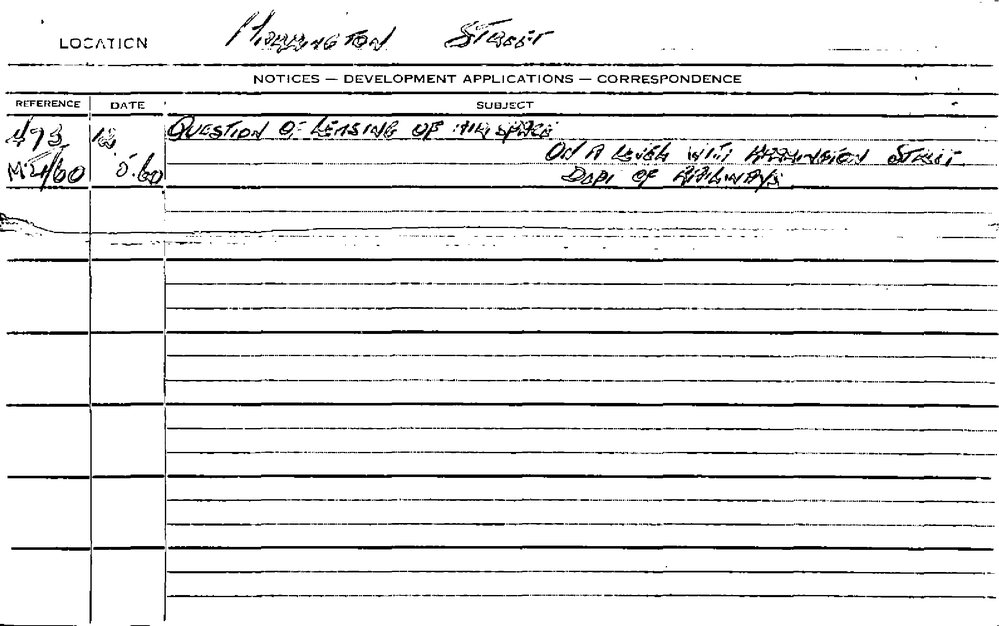 LOCATION Harrington Street
NOTICES — DEVELOPMENT APPLICATIONS — CORRESPONDENCE
REFERENCE DATE SUBJECT
493 12 QUESTION OF LEASING OF AIR SPACE
ON A LEVEL WITH HARRINGTON STREET
/60 5.60 DEPT OF RAILWAYS